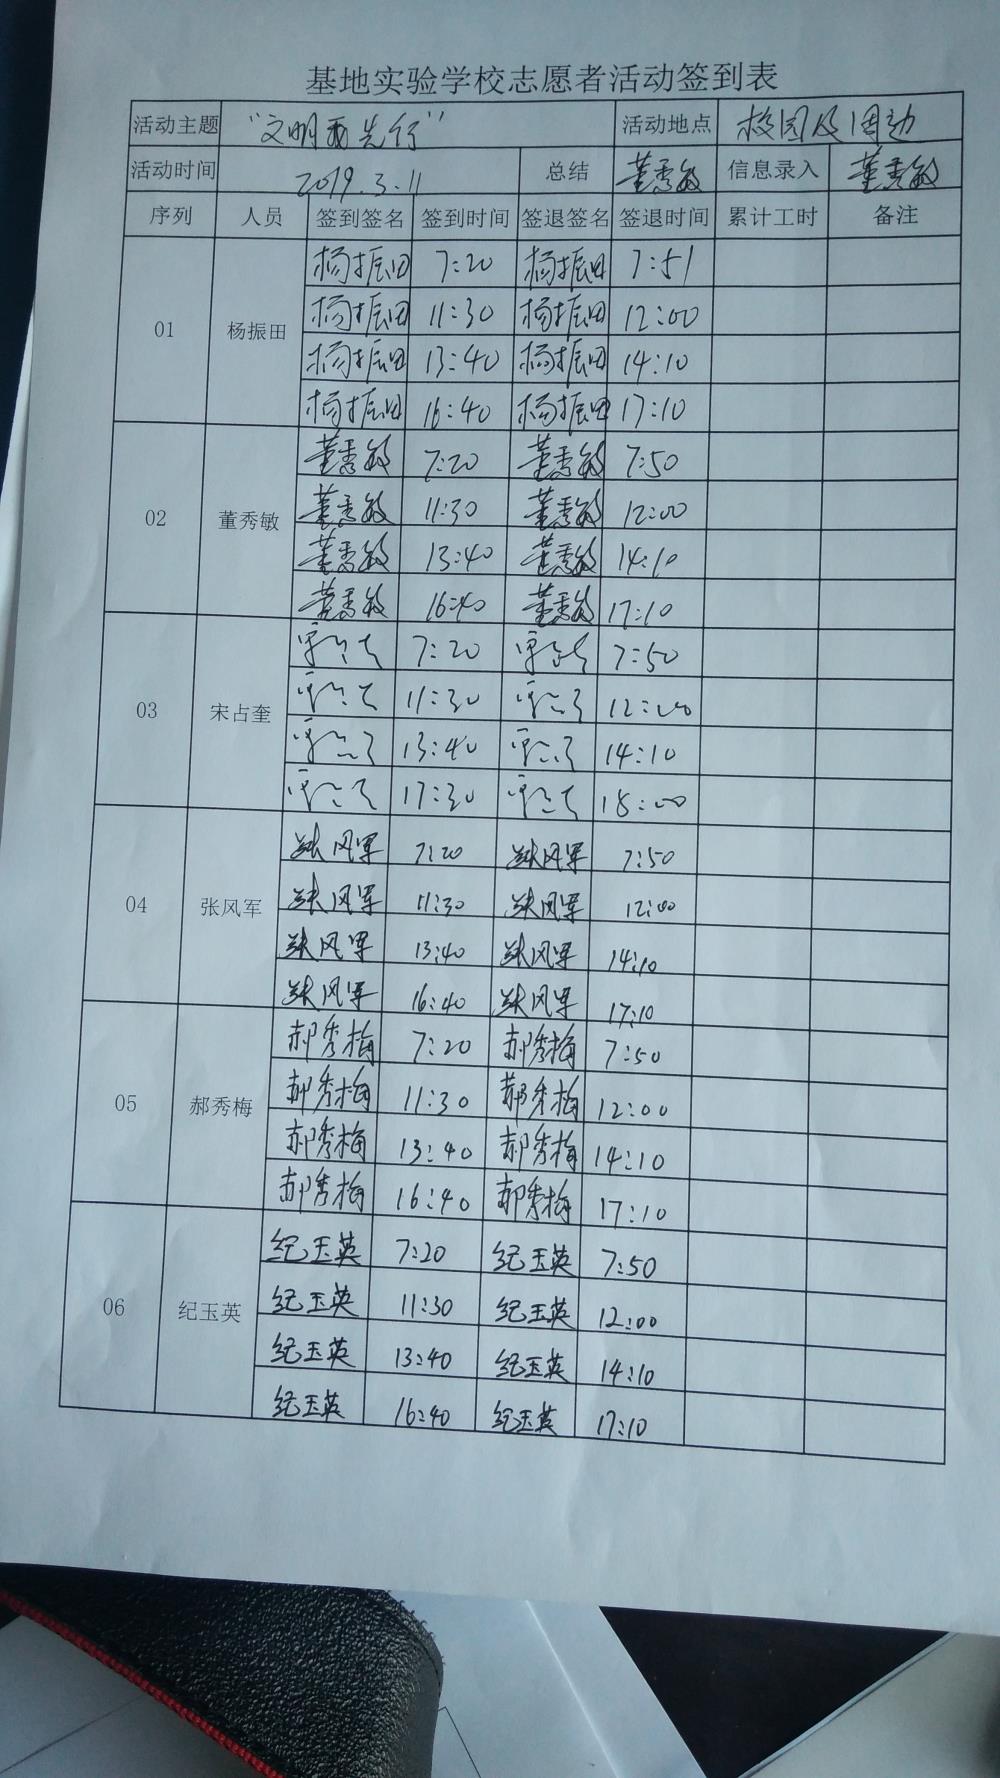 基地实验学校志愿者活动签到表
活动主题 “文明 先行” 活动地点 校园及周边
活动时间 2019.3.11 总结 董秀敏 信息录入 董秀敏
序列 人员 签到签名 签到时间 签退签名 签退时间 累计工时 备注
01 杨振田 杨振田 7:20 杨振田 7:51
杨振田 11:30 杨振田 12:00
杨振田 13:40 杨振田 14:10
杨振田 16:40 杨振田 17:10
02 董秀敏 董秀敏 7:20 董秀敏 7:50
董秀敏 11:30 董秀敏 12:00
董秀敏 13:40 董秀敏 14:10
董秀敏 16:40 董秀敏 17:10
03 宋占奎 宋占奎 7:20 宋占奎 7:50
宋占奎 11:30 宋占奎 12:00
宋占奎 13:40 宋占奎 14:10
宋占奎 17:30 宋占奎 18:00
04 张风军 张风军 7:20 张风军 7:50
张风军 11:30 张风军 12:00
张风军 13:40 张风军 14:10
张风军 16:40 张风军 17:10
05 郝秀梅 郝秀梅 7:20 郝秀梅 7:50
郝秀梅 11:30 郝秀梅 12:00
郝秀梅 13:40 郝秀梅 14:10
郝秀梅 16:40 郝秀梅 17:10
06 纪玉英 纪玉英 7:20 纪玉英 7:50
纪玉英 11:30 纪玉英 12:00
纪玉英 13:40 纪玉英 14:10
纪玉英 16:40 纪玉英 17:10